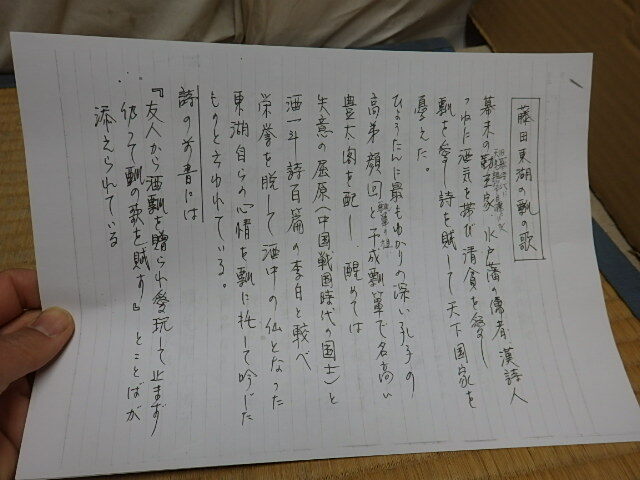 藤田東湖の瓢の歌
幕末の勤王家 水戸藩の儒者 漢詩人
つねに酒気を帯び清貧を愛し
瓢を愛し詩を賦して天下国家を
憂えた。
ひょうたんに最もゆかりの深い孔子の
高弟顔回と千成瓢箪で名高い
豊太閤を配し、醒めては
失意の屈原(中国戦国時代の国士)と
酒一斗詩百篇の李白と較べ
栄誉を脱して酒中の仙となった
東湖自らの心情を瓢に托して吟じた
ものと云われている。
詩の前書には
『友人から酒瓢を贈られ愛玩して止まず
仍って瓢の歌を賦す』とことばが
添えられている